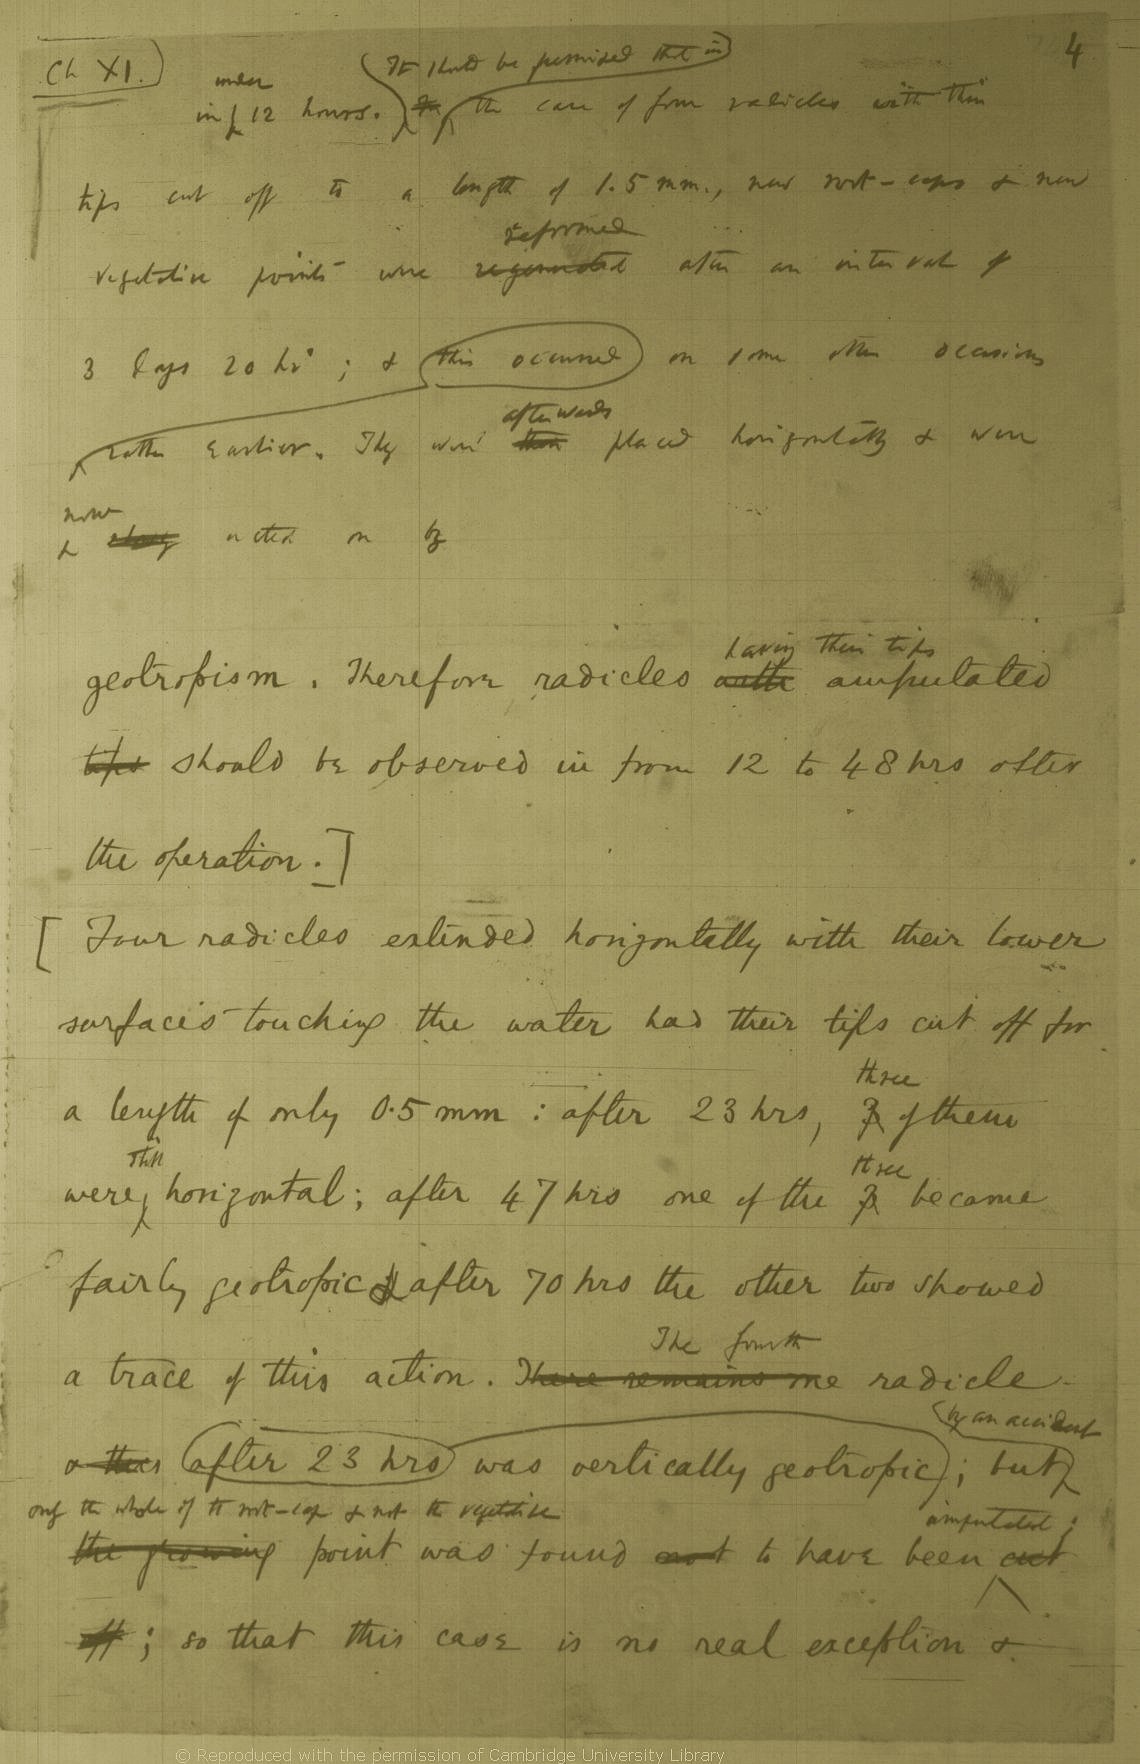 Ch XI.
4
It should be premised that in
under
in 12 hours. In the case of four radicles with their
tips cut off to a length of 1.5 mm., new root-caps & new
reformed
vegetative points were regenerated after an interval of
3 days 20 hrs; & this occurred on some other occasions
afterwards
rather earlier. They were then placed horizontally & were
now
& acted on by
having their tips
geotropism. Therefore radicles with amputated
tips should be observed in from 12 to 48 hrs after
the operation.]
[Four radicles extended horizontally with their lower
surfaces touching the water had their tips cut off for
three
a length of only 0.5 mm: after 23 hrs, 3 of them
still
three
were horizontal; after 47 hrs one of the 3 became
fairly geotropic & after 70 hrs the other two showed
The fourth
a trace of this action. There remains one radicle
by an accident
after 23 hrs was vertically geotropic; but
only the whole of the root-cap & not the vegetative
amputated;
the growing point was found not to have been cut
off; so that this case is no real exception &
© Reproduced with the permission of Cambridge University Library